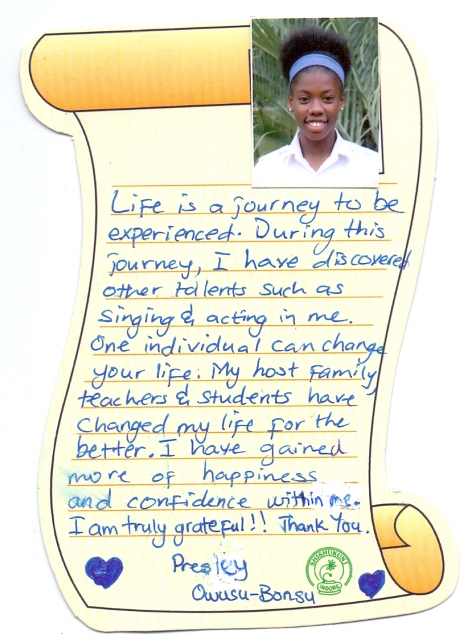 Life is a journey to be
experienced. During this
journey, I have discovered
other talents such as
singing & acting in me.
One individual can change
your life. My host family
teachers & students have
changed my life for the
better. I have gained
more of happiness
and confidence within me.
I am truly grateful!! Thank You.
Presley
Owusu-Bonsu
SHISHUKUNJ
INDORE